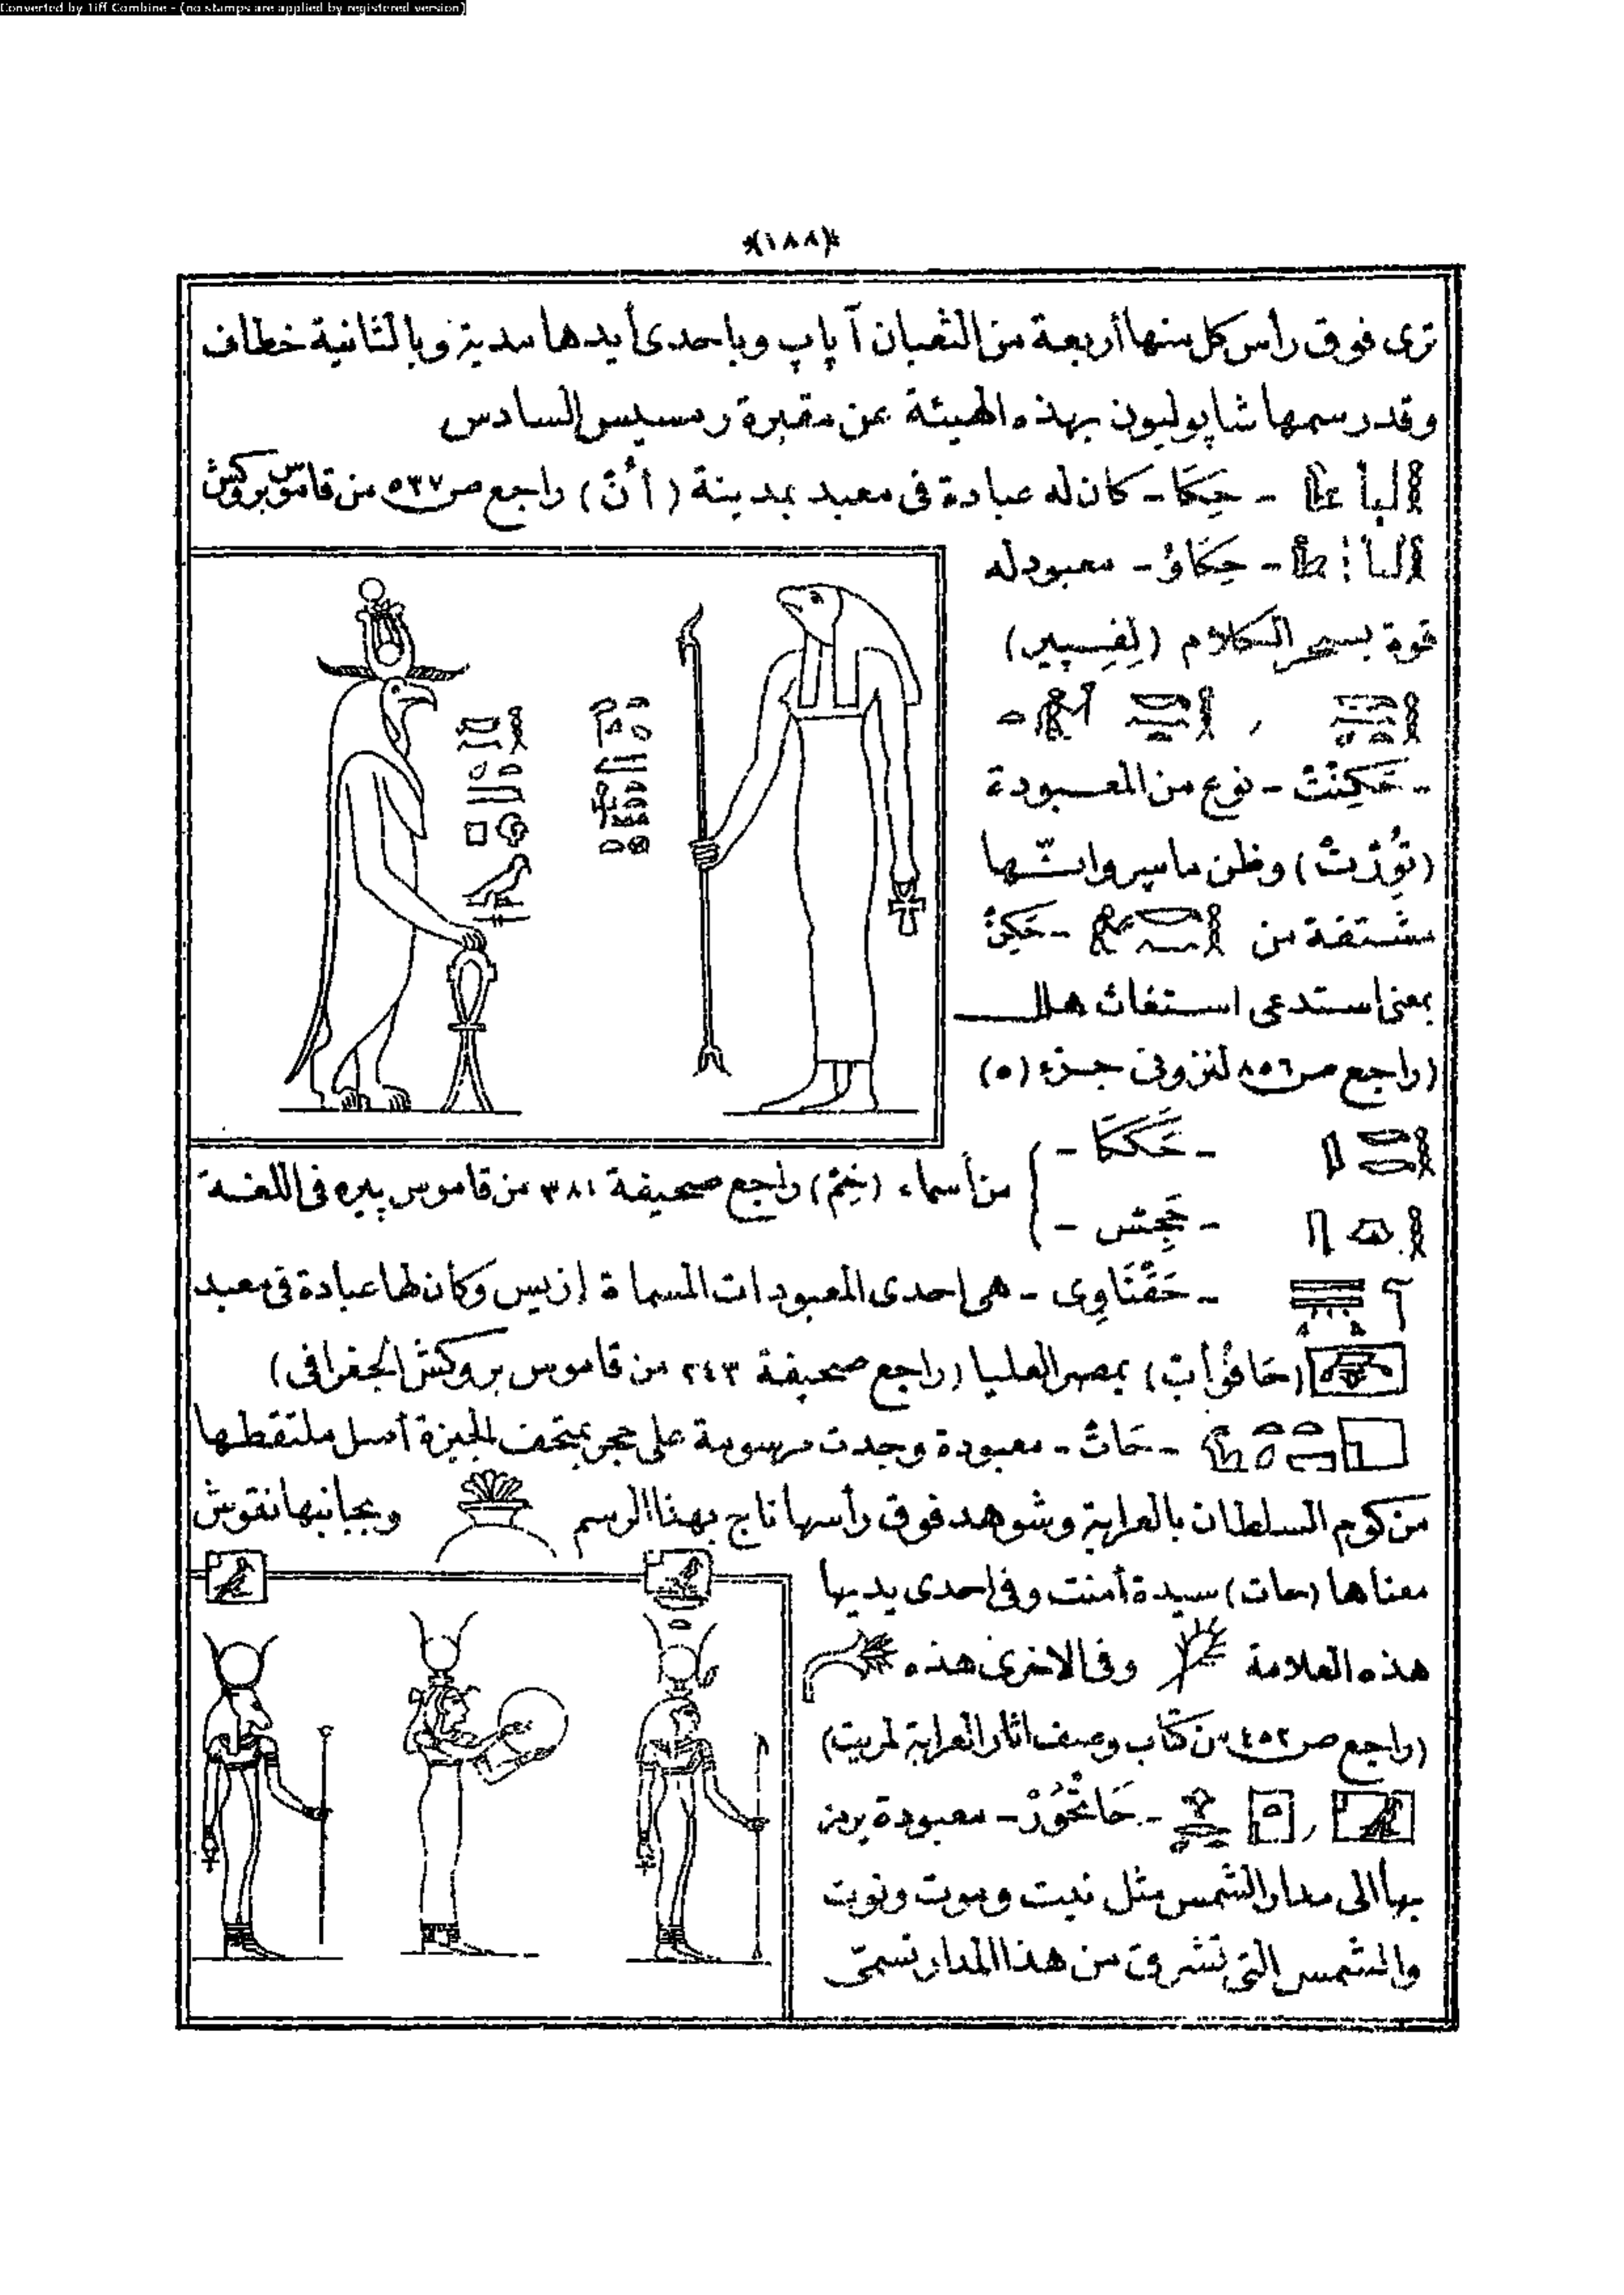 Converted by Tiff Combine - (no stamps are applied by registered version)
*(١٨٨)*
ترى فوق رأس كل منها أربعة من الثعبان آپاپ وباحدى أيدها مدية وبالثانية خطاف
وقد رسمها شاپوليون بهذه الهيئة عن مقبرة رمسيس السادس
- حِكَا - كان له عبادة فى معبد بمدينة (أُنْ) راجع ص ٥٣٧ من قاموس بروكش
- حِكَاوُ - معبود له
قوة بسحر الكلام (لِفِسِيير)
- حَكِنْتْ - نوع من المعبودة
(تِوُرْتْ) وظن ماسپرو انّها
مشتقة من - حَكِنْ
بمعنى استدعى استغاث هلل
(راجع ص ٨٥٦ لنزونى جزء (٥)
- حَكَكَا -
من أسماء (خِنِمْ) راجع صحيفة ٣٨١ من قاموس پيره فى اللغة
- حَجِسْ -
- حَقْنَاوِى - هى احدى المعبودات المسماة إزيس وكان لها عبادة فى معبد
(حَافُوأبْ) بمصر العليا (راجع صحيفة ٢٤٣ من قاموس بروكش الجغرافى)
- حَاتْ - معبودة وجدت مرسومة على حجر بمتحف الجيزة أصل ملتقطها
من كوم السلطان بالعرابة وشوهد فوق رأسها تاج بهذا الرسم وبجانبها نقوش
معناها (حات) سيدة أمنت وفى احدى يديها
هذه العلامة وفى الاخرى هذه
(راجع ص ٤٥٢ من كتاب وصف اثار العرابة لمريت)
- حَاتْحُورْ - معبودة يرمز
بها الى مدار الشمس مثل نيت وموت ونوت
والشمس التى تشرق من هذا المدار تسمّى